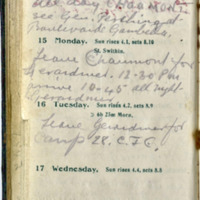 see Gen. Pershing at
Boulevard Gambetta.
15 Monday. Sun rises 4.1, sets 8.10
St. Swithin.
Leave Chaumont for
Gerardmer. 12-30 P.M.
arrive 10-45 at night
Gerardmer
16 Tuesday. Sun rises 4.2, sets 8.9
6h 25m Morn.
Leave Gerardmer for
Camp 28. C.F.C.
17 Wednesday. Sun rises 4.4, sets 8.8